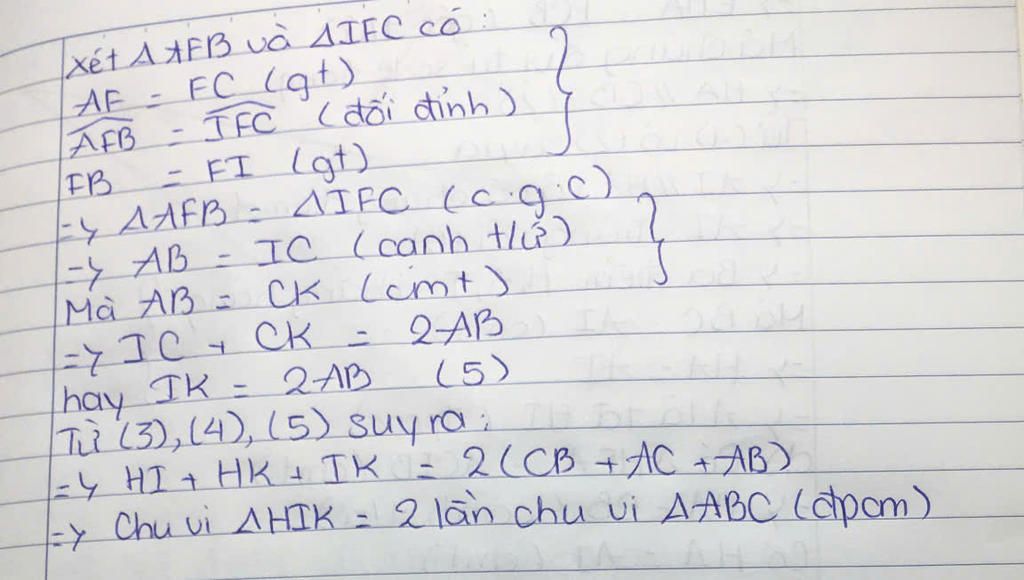 Xét ΔAFB và ΔIFC có:
AF = FC (gt)
\widehat{AFB} = \widehat{IFC} (đối đỉnh)
FB = FI (gt)
=> ΔAFB = ΔIFC (c.g.c)
=> AB = IC (cạnh t/ứ)
Mà AB = CK (cmt)
=> IC + CK = 2AB
hay IK = 2AB (5)
Từ (3), (4), (5) suy ra:
=> HI + HK + IK = 2(CB + AC + AB)
=> Chu vi ΔHIK = 2 lần chu vi ΔABC (đpcm)